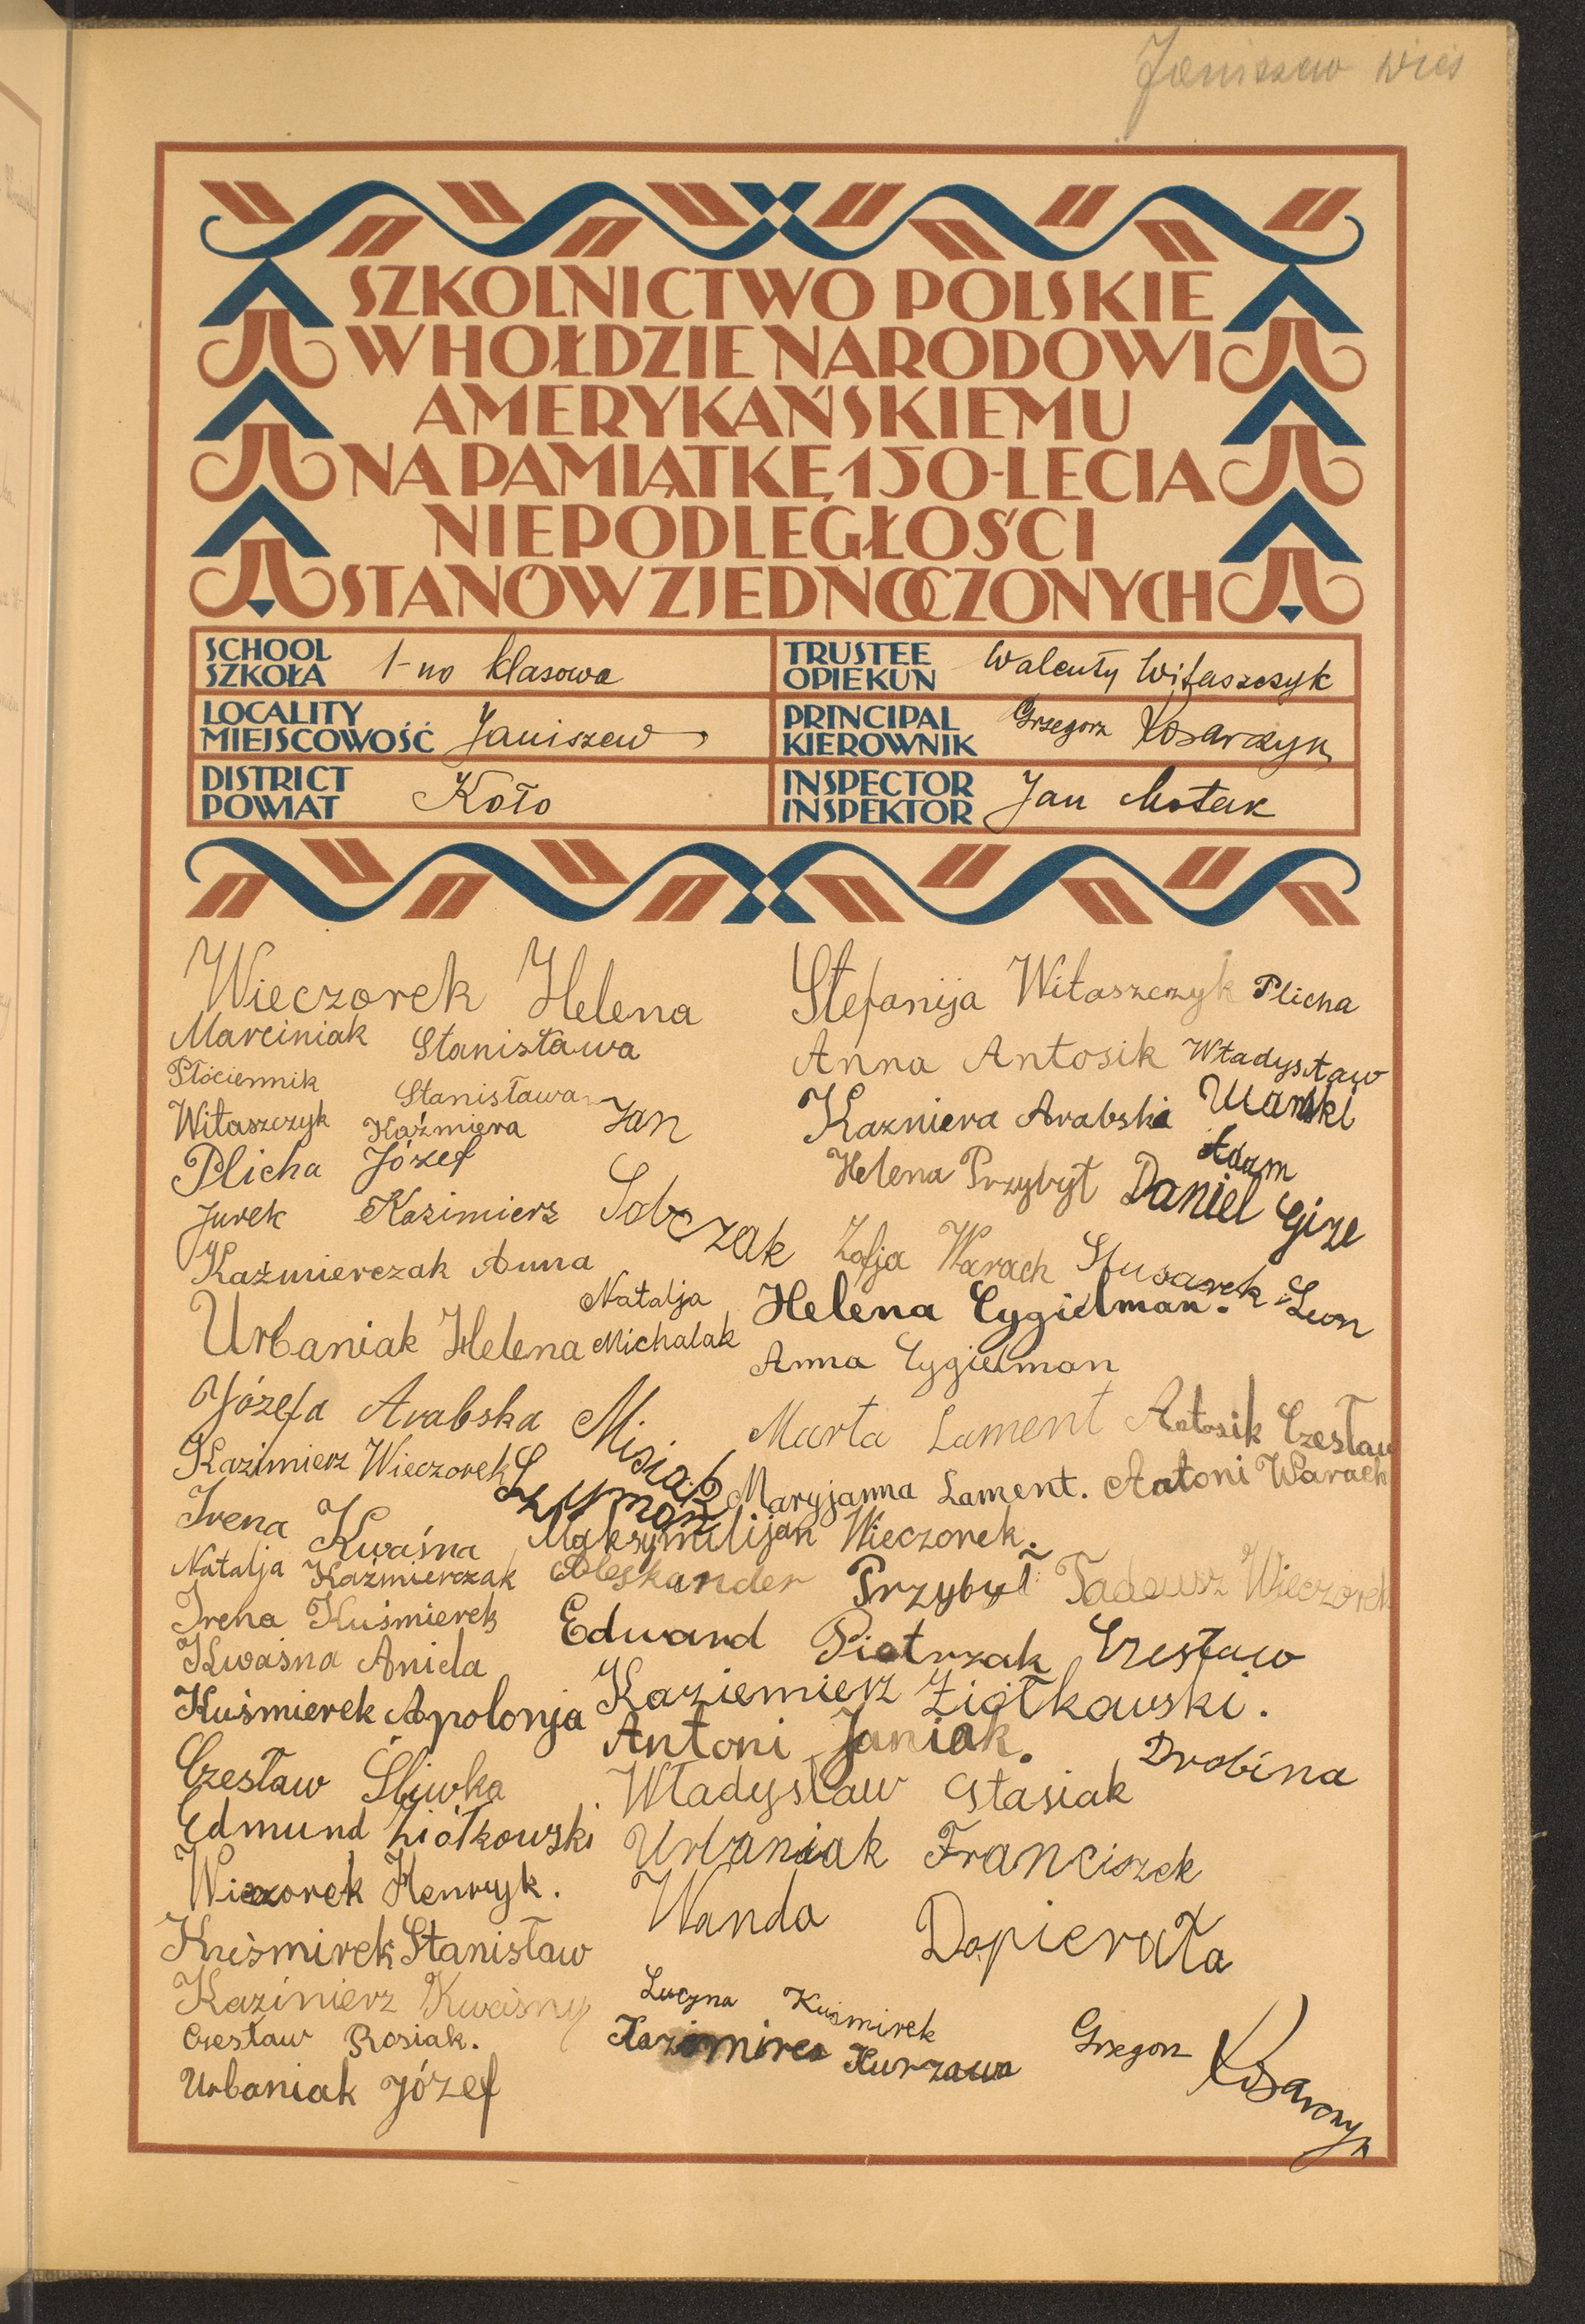 Janiszew wieś
SZKOLNICTWO POLSKIE
W HOŁDZIE NARODOWI
AMERYKAŃSKIEMU
NA PAMIĄTKĘ 150-LECIA
NIEPODLEGŁOŚCI
STANÓW ZJEDNOCZONYCH
SCHOOL
SZKOŁA
1-no klasowa
TRUSTEE
OPIEKUN
Walenty Witaszczyk
LOCALITY
MIEJSCOWOŚĆ
Janiszew
PRINCIPAL
KIEROWNIK
Grzegorz Kosarzyn
DISTRICT
POWIAT
Koło
INSPECTOR
INSPEKTOR
Jan
Wieczorek Helena
Marciniak Stanisława
Płóciennik Stanisława
Witaszczyk Kaźmiera
Plicha Józef
Jurek Kazimierz
Jan Sobczak
Kaźmierczak Anna
Urbaniak Helena
Natalja Michalak
Józefa Arabska
Kazimierz Wieczorek
Misiak Szymon
Irena Kwaśna
Natalja Kaźmierczak
Irena Kuśmierek
Kwaśna Aniela
Kuśmierek Apolonja
Czesław Śliwka
Edmund Ziółkowski
Wieczorek Henryk.
Kuśmirek Stanisław
Kazimierz Kwaśny
Czesław Rosiak.
Urbaniak Józef
Stefanija Witaszczyk
Plicha Władysław
Anna Antosik
Kazmiera Arabska
Adam
Helena Przybył
Daniel Gize
Zofja Warach
Slusarek Leon
Helena Cygielman.
Anna Cygielman
Marta Lament
Antosik Czesław
Maryjanna Lament.
Antoni Warach
Maksymilijan Wieczorek.
Aleskander Przybył
Tadeusz Wieczorek
Edward Pietrzak
Czesław Drobina
Kaziemierz Ziółkowski.
Antoni Janiak.
Władysław Stasiak
Urbaniak Franciszek
Wanda Dopierała
Lucyna Kuśmirek
Kazimirea Kurzawa
Grzegorz Kosarzyn